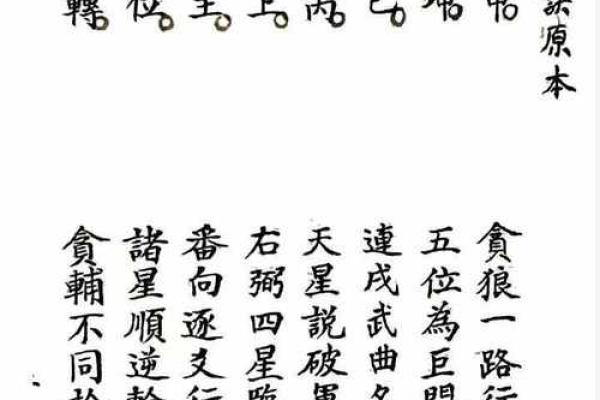 原本
申。
貪狼一路行
坤。
五位為巨門
巳。
連戌武曲名
丙。
天星說破軍
上。
右弼四星臨
主。
番向逐爻行
位。
諸星順逆輪
轉。
貪輔不同